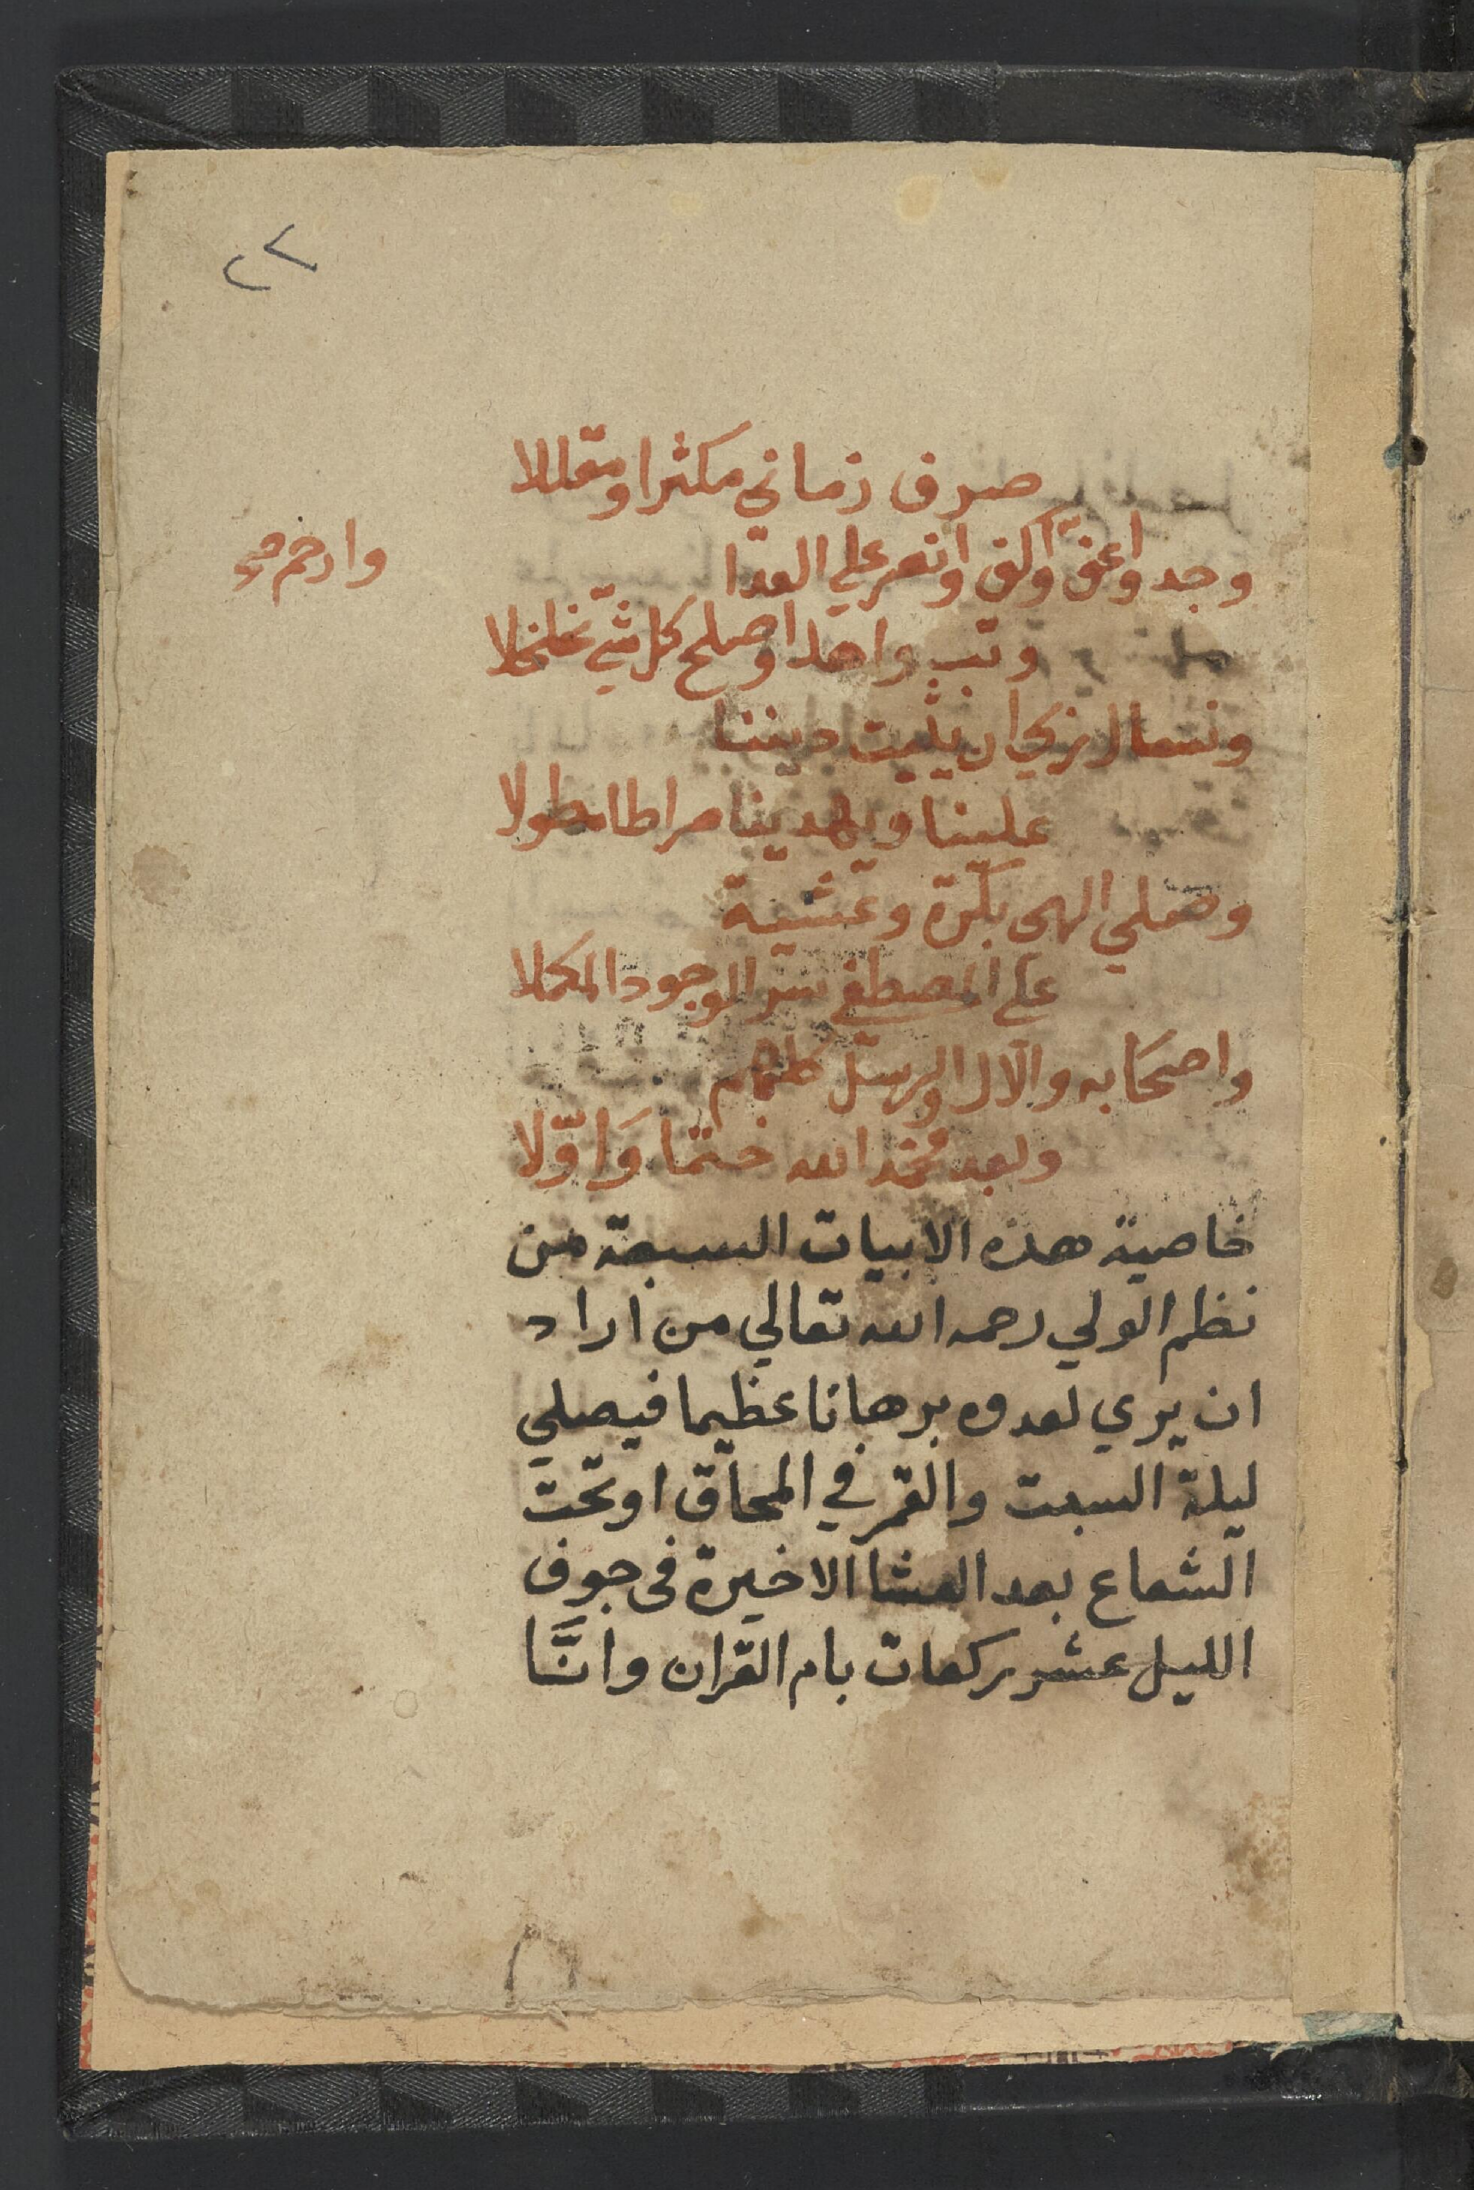 ٢٢
صرف زماني مكثرا ومقللا
وجد واعف واكف وانصر علي العدا
وارحم صح
وتب واهدا وصلح كل شي تخلخلا
ونسال ربي ان يثبت ديننا
علينا ويهدينا صراطا مطولا
وصلي الهى بكرة وعشية
على المصطفى سر الوجود المكملا
واصحابه والال والرسل كلهم
وبعد فحمد الله ختما وَاوّلا
خاصية هذه الابيات السبعة من
نظم الولي رحمه الله تعالي من اراد
ان يري لعدوه برهانا عظيما فيصلي
ليلة السبت والقمر في المحاق او تحت
الشعاع بعد العشا الاخيرة فى جوف
الليل عشر ركعات بام القران وانَّا